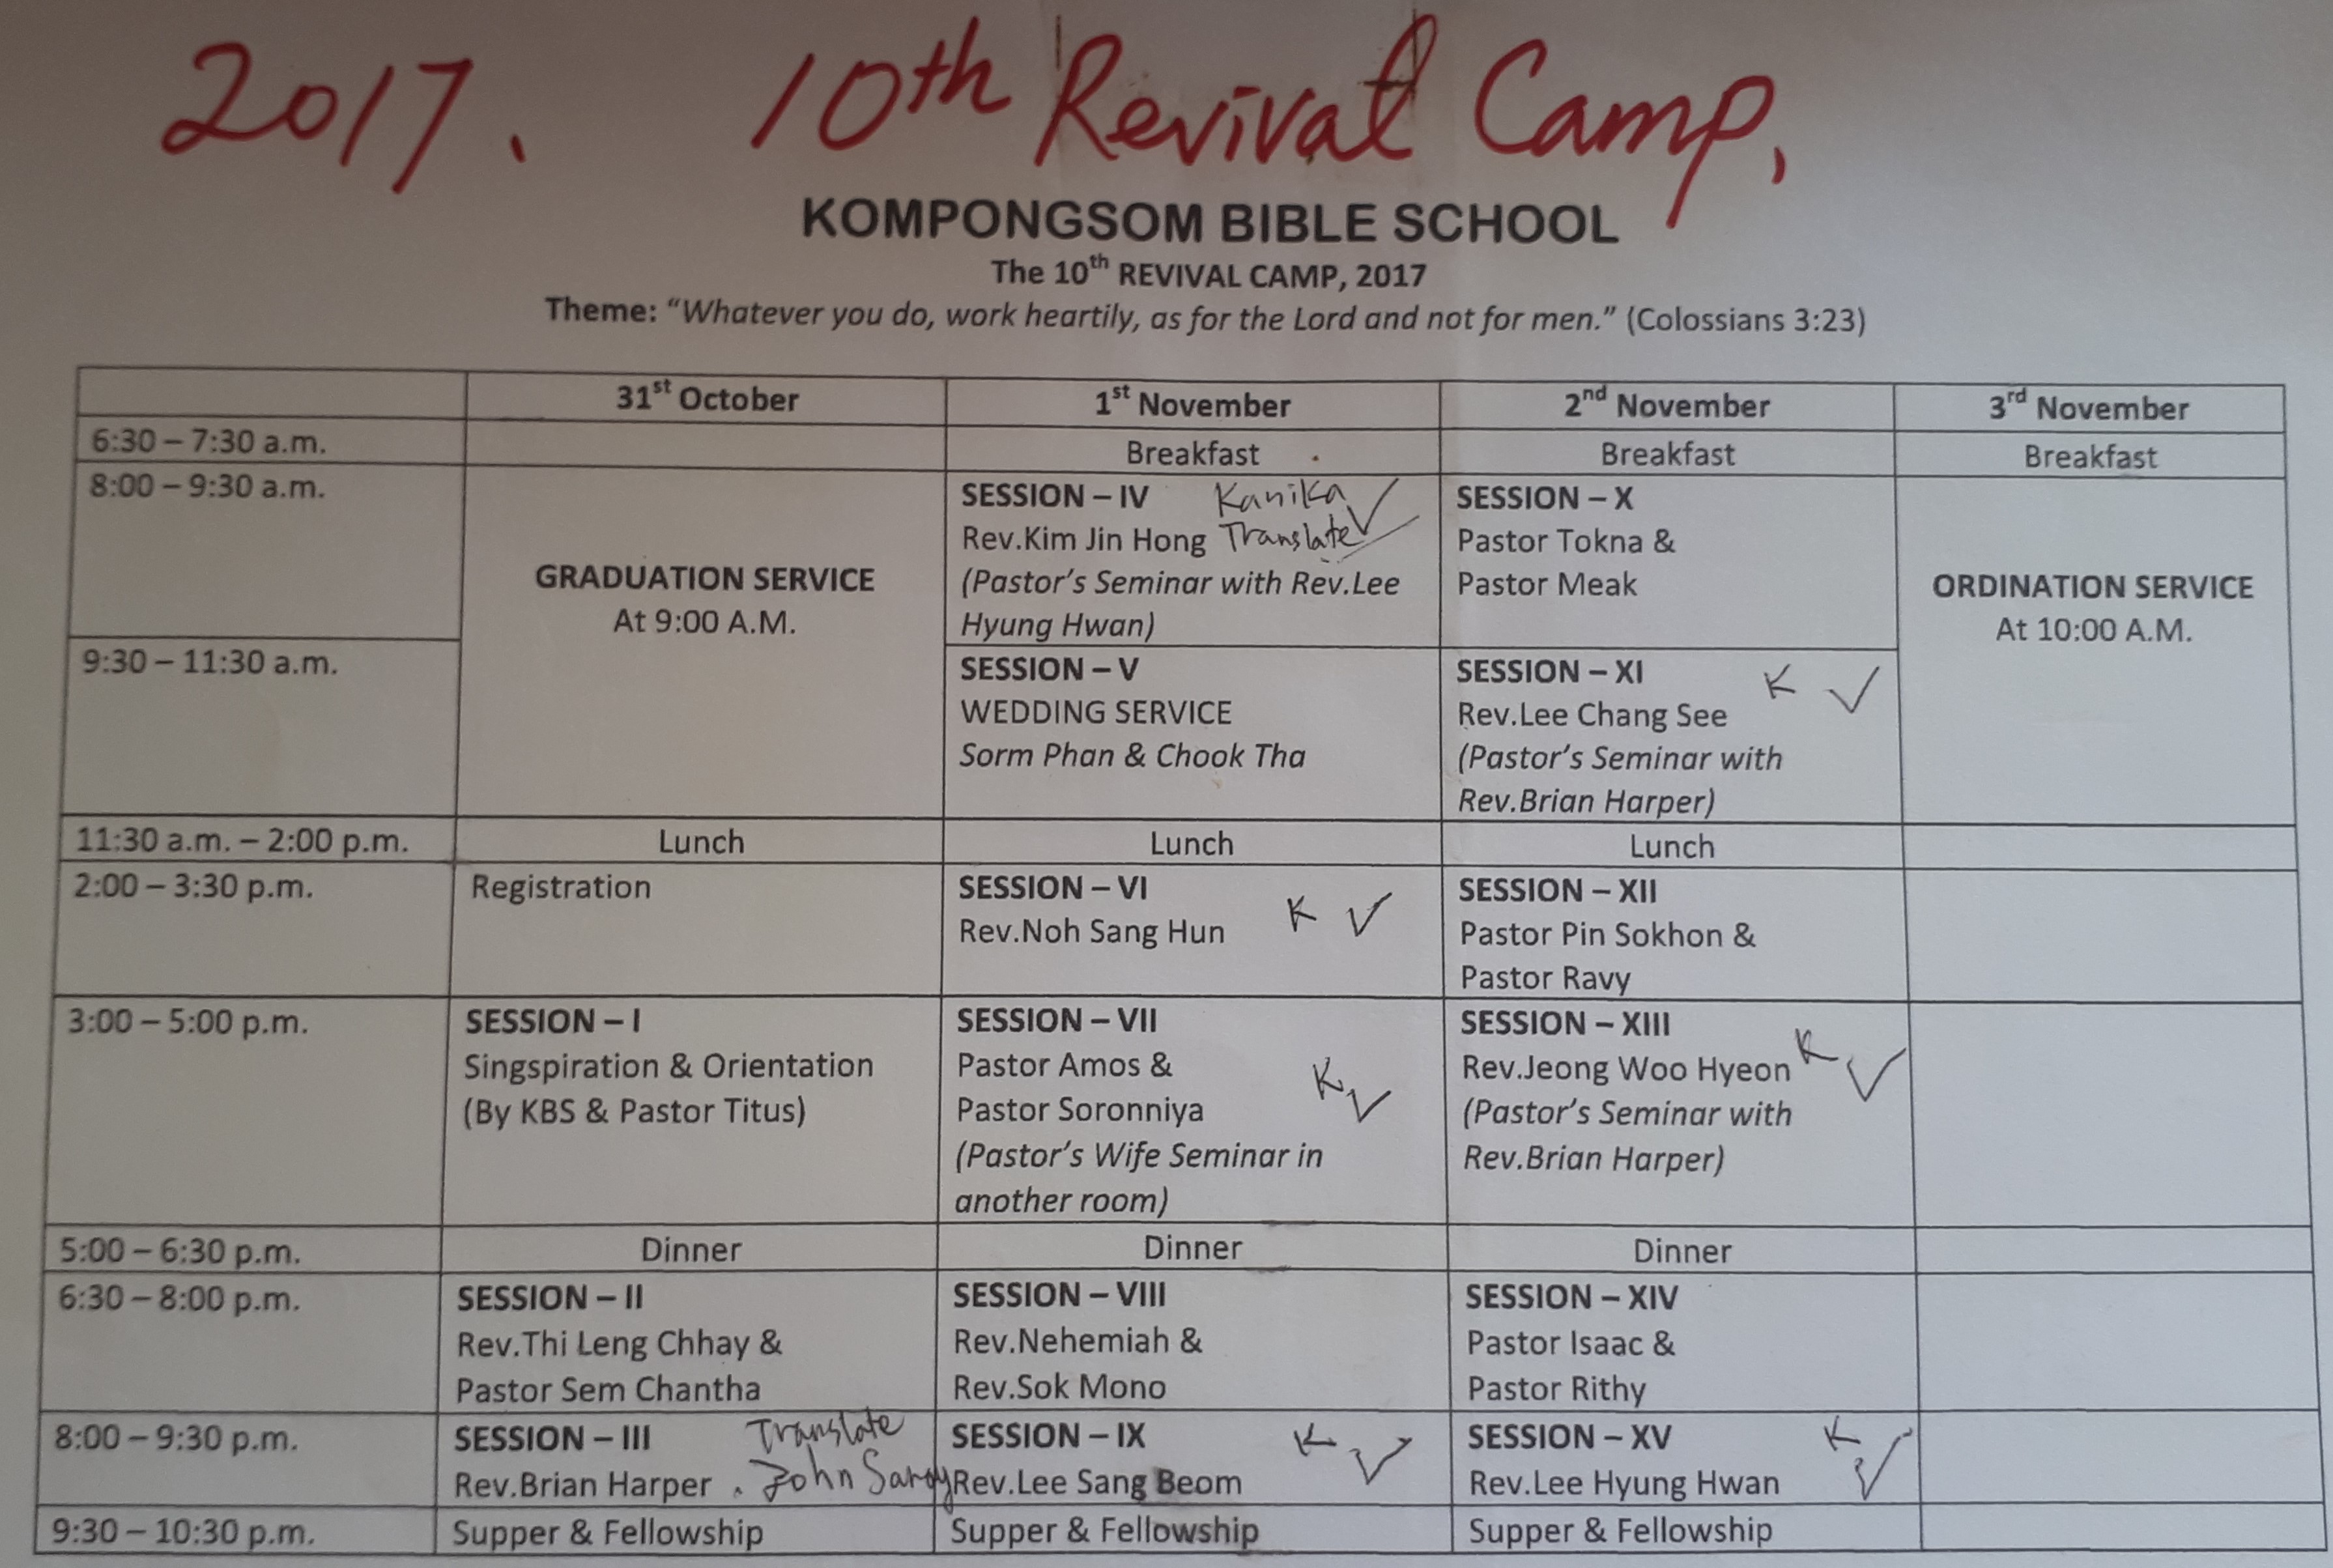 2017. 10th Revival Camp,
KOMPONGSOM BIBLE SCHOOL
The 10th REVIVAL CAMP, 2017
Theme: “Whatever you do, work heartily, as for the Lord and not for men.” (Colossians 3:23)
31st October 1st November 2nd November 3rd November
6:30 – 7:30 a.m. Breakfast Breakfast Breakfast
8:00 – 9:30 a.m.
GRADUATION SERVICE
At 9:00 A.M.
SESSION – IV Kanika ✓
Rev.Kim Jin Hong Translate
(Pastor’s Seminar with Rev.Lee
Hyung Hwan)
SESSION – X
Pastor Tokna &
Pastor Meak
ORDINATION SERVICE
At 10:00 A.M.
9:30 – 11:30 a.m.
SESSION – V
WEDDING SERVICE
Sorm Phan & Chook Tha
SESSION – XI K ✓
Rev.Lee Chang See
(Pastor’s Seminar with
Rev.Brian Harper)
11:30 a.m. – 2:00 p.m. Lunch Lunch Lunch
2:00 – 3:30 p.m.
Registration
SESSION – VI
Rev.Noh Sang Hun K ✓
SESSION – XII
Pastor Pin Sokhon &
Pastor Ravy
3:00 – 5:00 p.m.
SESSION – I
Singspiration & Orientation
(By KBS & Pastor Titus)
SESSION – VII
Pastor Amos & K ✓
Pastor Soronniya
(Pastor’s Wife Seminar in
another room)
SESSION – XIII
Rev.Jeong Woo Hyeon K ✓
(Pastor’s Seminar with
Rev.Brian Harper)
5:00 – 6:30 p.m. Dinner Dinner Dinner
6:30 – 8:00 p.m.
SESSION – II
Rev.Thi Leng Chhay &
Pastor Sem Chantha
SESSION – VIII
Rev.Nehemiah &
Rev.Sok Mono
SESSION – XIV
Pastor Isaac &
Pastor Rithy
8:00 – 9:30 p.m.
SESSION – III Translate
Rev.Brian Harper . John Sandy
SESSION – IX K ✓
Rev.Lee Sang Beom
SESSION – XV K ✓
Rev.Lee Hyung Hwan
9:30 – 10:30 p.m. Supper & Fellowship Supper & Fellowship Supper & Fellowship